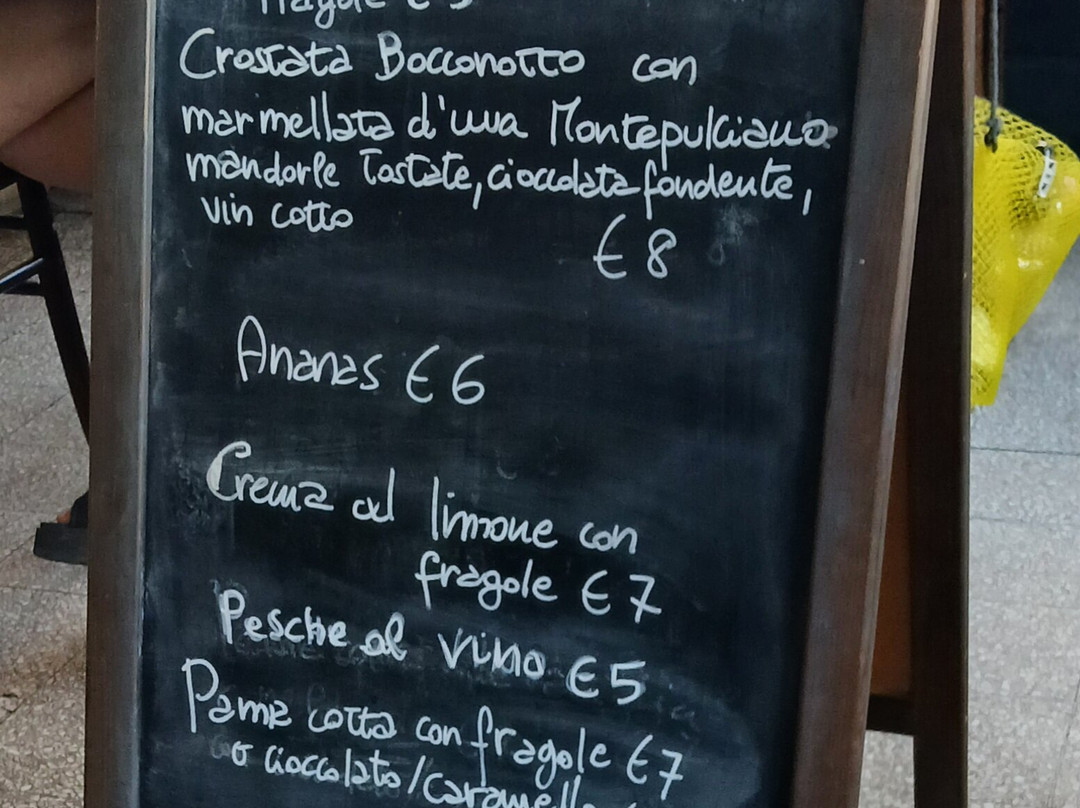 Fragole € 5
Crostata Bocconotto con
marmellata d'uva Montepulciano
mandorle Tostate, cioccolata fondente,
vin cotto
€ 8
Ananas € 6
Crema al limone con
fragole € 7
Pesche al vino € 5
Panna cotta con fragole € 7
o cioccolato/caramello